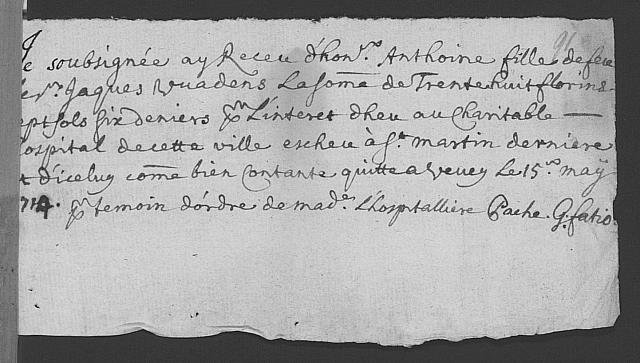 Je soubsignée ay Receu d'hon.ble Anthoine fille de feu
Jaques Vuadens La Some de Trente huit florins
sept sols six deniers pr L'interet dheu au Charitable —
hospital de cette ville escheu à St. martin derniere
et d'iceluy come bien Contante quitte a Vevey Le 15.e may
1714. pr temoin d'ordre de mad.e L'hospitalliere Pache. G. fatio.